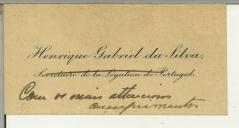 Henrique Gabriel da Silva,
Secrétaire de la Légation de Portugal.
Com os mais attenciosos
cumprimentos